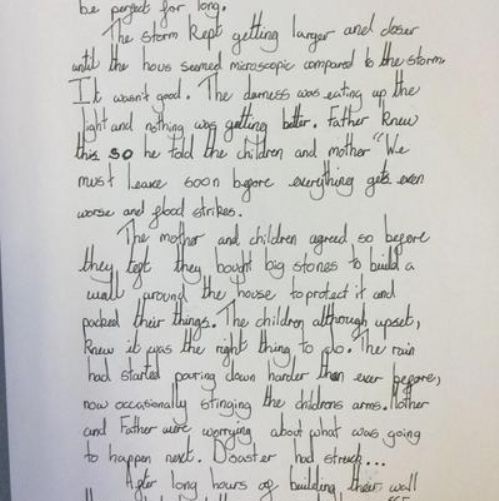 be perfect for long.
The storm kept getting larger and closer
until the hous seemed microscopic compared to the storm.
It wasn't good. The darness was eating up the
light and nothing was getting better. Father knew
this so he told the children and mother "We
must leave soon before everything gets even
worse and flood strikes.
The mother and children agreed so before
they left they bought big stones to build a
wall around the house to protect it and
packed their things. The children although upset,
knew it was the right thing to do. The rain
had started pouring down harder than ever before,
now occasionally stinging the childrens arms. Mother
and Father were worrying about what was going
to happen next. Disaster had struck...
After long hours of building their wall